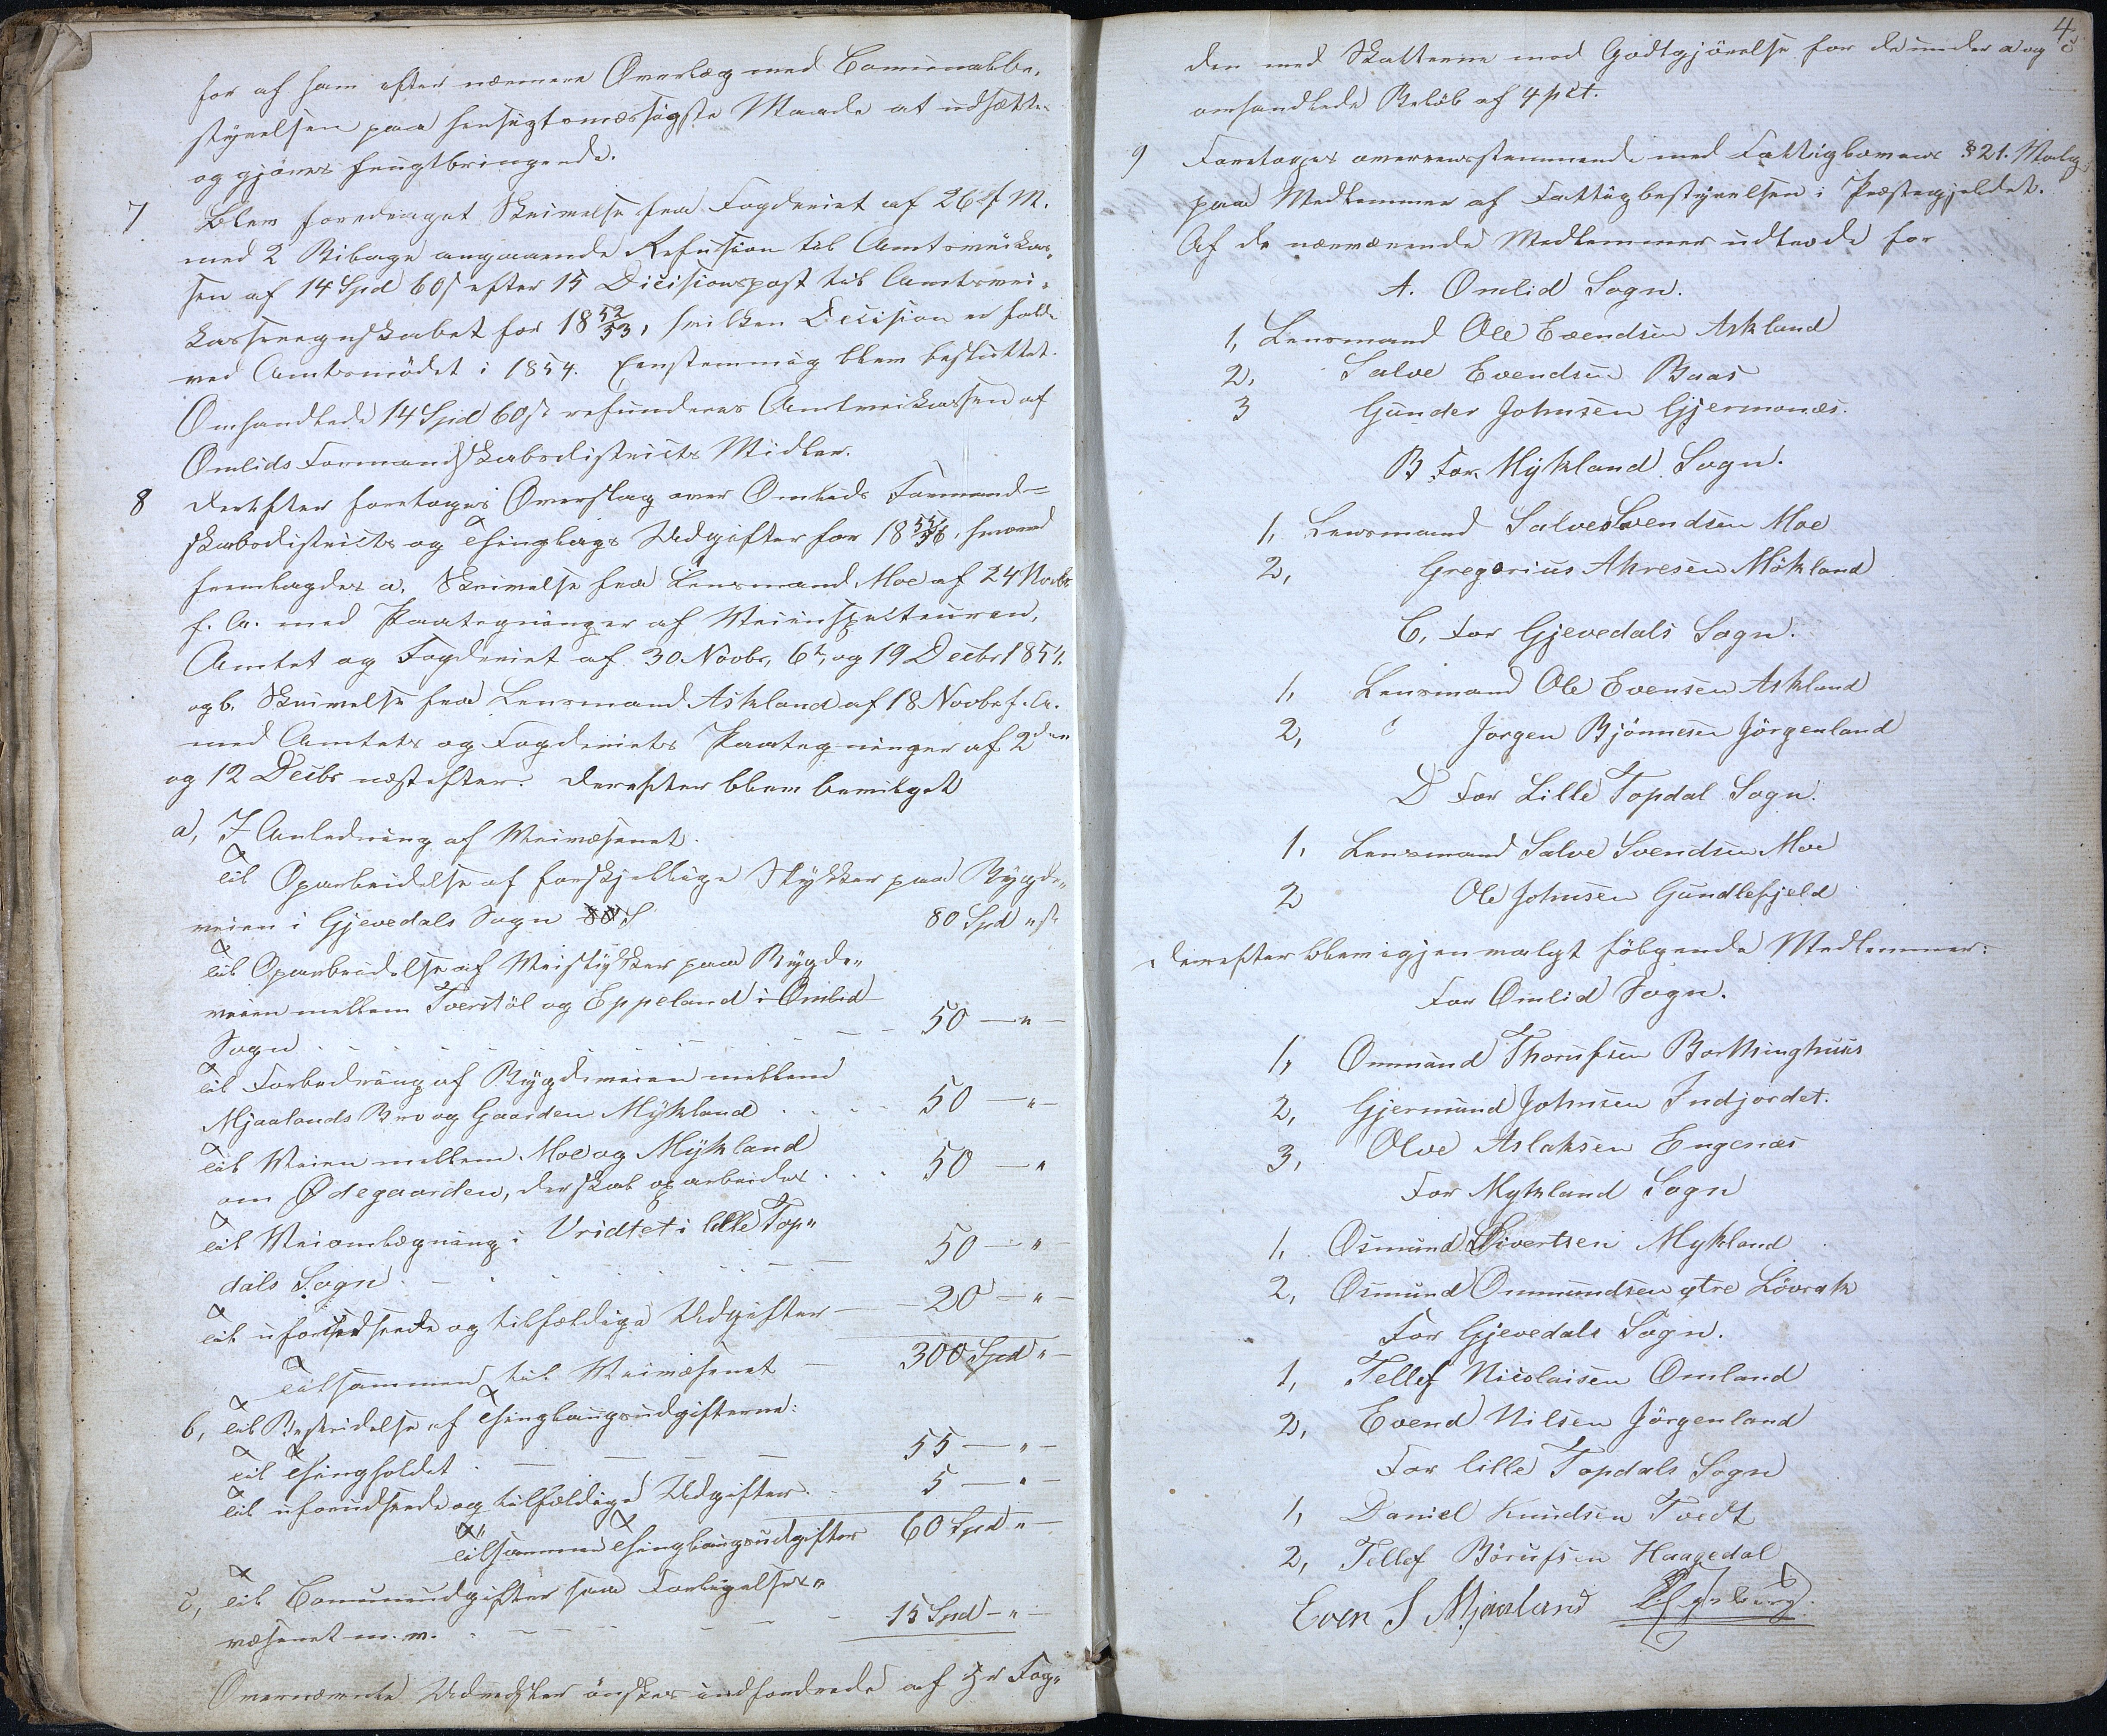 for af ham efter nærmere Overlæg med Communalbe-
styrelsen paa hensigtsmæssigste Maade at udsættes
og gjøres frugtbringende.
7 Blev foredraget Skrivelse fra Fogderiet af 26 f. M.
med 2 Bilage angaaende Refusion til Amtsveikas-
sen af 14 Spd 60 s efter 15 Decisionspost til Amtsvei-
kasseregnskabet for 18 52/53, hvilken Decision er faldt
ved Amtsmødet i 1854. Eenstemmig blev besluttet.
Omhandlede 14 Spd 60 s refunderes Amtveikassen af
Omlids Formandskabsdistricts Midler.
8 Derefter foretoges Overslag over Omlids Formand-
skabsdistricts og Thinglags Udgifter for 18 55/56, hvorved
fremlagdes a. Skrivelse fra Lensmand Moe af 24 Novbr
f. A. med Paategninger af Veiinspecteuren,
Amtet og Fogderiet af 30 Novbr, 6te, og 19 Decbr 1854.
og b. Skrivelse fra Lensmand Askland af 18 Novbr f. A.
med Amtets og Fogderiets Paategninger af 2den
og 12 Decbr næstefter. Derefter blev bevilget
a, I Anledning af Veivæsenet.
Til Oparbeidelse af forskjellige Stykker paa Bygde-
veien i Gjevedals Sogn 80 Spd " s
Til Oparbeidelse af Veistykker paa Bygde-
veien mellem Tverstøl og Eppeland i Omlid
Sogn 50 — " —
Til Forbedring af Bygdeveien mellem
Mjaalands Bro og Gaarden Mykland 50 — " —
Til Veien mellem Moe og Mykland
om Ødegaarden, der skal oparbeides 50 — "
Til Veiomlægning i Vridtet i lille Top-
dals Sogn 50 — " —
Til uforudseede og tilfældige Udgifter 20 — " —
Tilsammen til Veivæsenet 300 Spd " —
b, Til Bestridelse af Thinglaugsudgifterne:
Til Thingholdet 55 — " —
Til uforudseede og tilfældige Udgifter 5 — " —
Tilsammen Thinglaugsudgifter 60 Spd " —
c, Til Communeudgifter saa Forligelses-
væsenet m. v. 15 Spd — " —
Overnævnte Udredsler ønskes indfordrede af Hr Fog-
4
den med Skatterne mod Godtgjørelse for de under a og c
omhandlede Beløb af 4 pCt.
9 Foretoges overeensstemmende med Fattiglovens § 21. Valg
paa Medlemmer af Fattigbestyrelsen i Præstegjeldet.
Af de nærværende Medlemmer udtræde for
A. Omlid Sogn.
1, Lensmand Ole Evendsen Askland
2. Salve Evendsen Baas
3 Gunder Johnsen Gjermonæs.
B For Mykland Sogn.
1, Lensmand Salve Svendsen Moe
2, Gregorius Akresen Mökland
C, For Gjevedals Sogn.
1, Lensmand Ole Evensen Askland
2, Jørgen Bjønnesen Jørgenland
D For Lille Topdal Sogn.
1. Lensmand Salve Svendsen Moe
2 Ole Johnsen Gundlefjeld
Derefter bleve igjen valgt følgende Medlemmer:
For Omlid Sogn.
1, Ommund Thorufsen Barthinghuus
2, Gjermund Johnsen Indjordet.
3, Olve Aslaksen Engenæs
For Mykland Sogn
1, Osmund Sivertsen Mykland
2, Osmund Ommundsen ytre Løvrak
For Gjevedals Sogn.
1, Tellef Nicolaisen Omland
2, Evend Nilsen Jørgenland
For lille Topdals Sogn
1, Daniel Knudsen Tvedt
2, Tellef Børufsen Haagedal
Even S Mjaaland